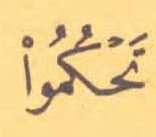 تَحْكُمُواْ